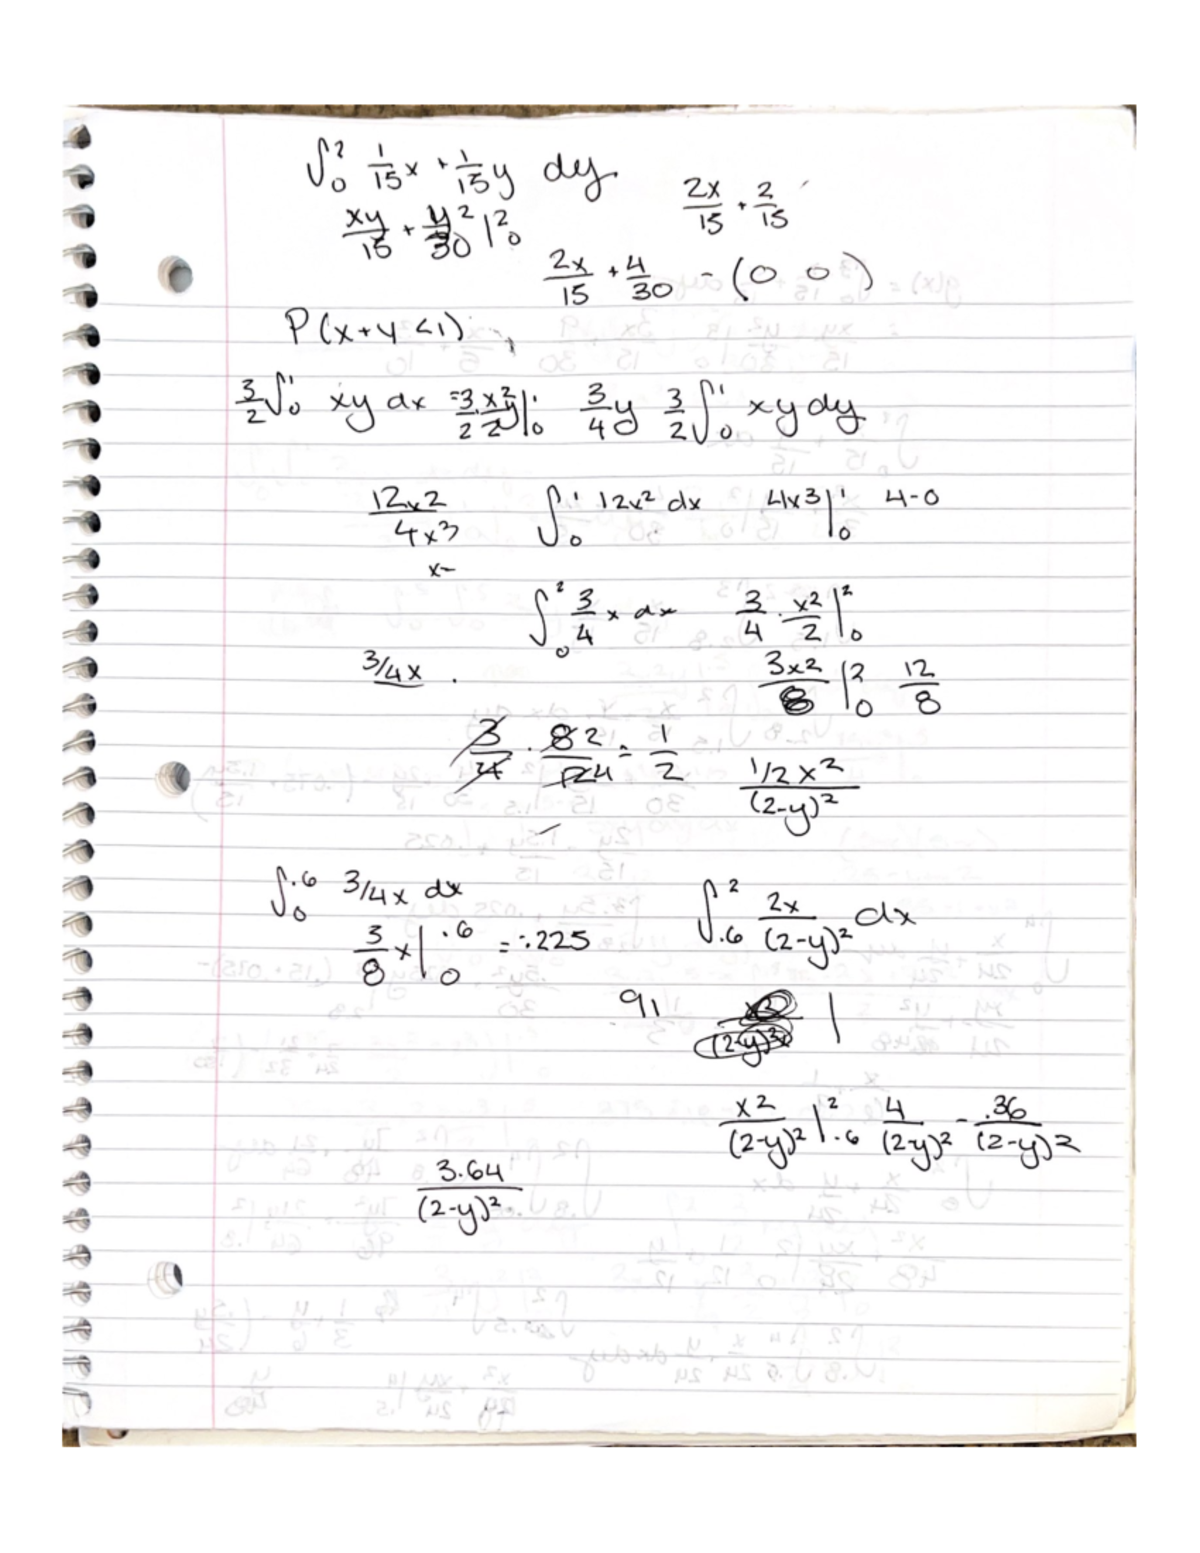 ∫₀² 1/15 x + 1/15 y dy
xy/15 + y²/30 |₀²    2x/15 + 2/15
2x/15 + 4/30 - (0 0)
P(x+y<1)
3/2 ∫₀¹ xy dx = 3/2 · x²/2 y |₀¹    3/4 y    3/2 ∫₀¹ xy dy
12x2/4x3    ∫₀¹ 12x² dx    4x3 |₀¹    4-0
x=
∫₀² 3/4 x dx    3/4 · x2/2 |₀²
3/4x .    3x2/8 |₀²    12/8
3/4 · 82/124 = 1/2    1/2x²/(2-y)²
∫₀^.6 3/4x dx    ∫.₆² 2x/(2-y)² dx
3/8 x |₀^.6 = .225
91
x2/(2-y)² |.₆²    4/(2-y)² - .36/(2-y)2
3.64/(2-y)²